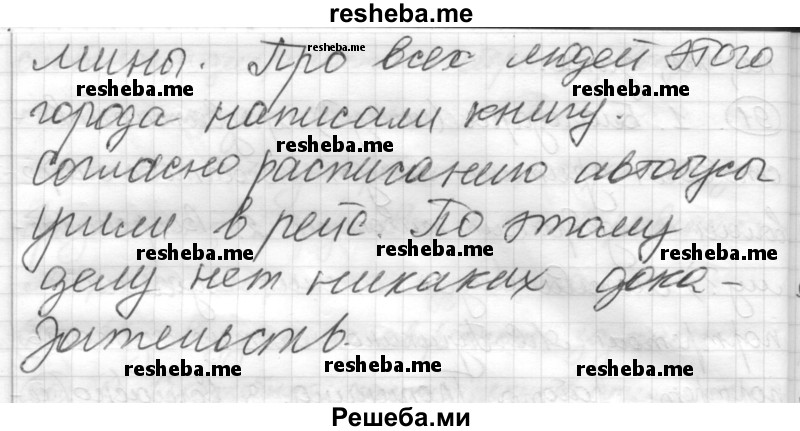 resheba.me
мины. Про всех людей этого
resheba.me
resheba.me
resheba.me
города написали книгу.
resheba.me
resheba.me
Согласно расписанию автобусы
ушли в рейс. По этому
resheba.me
resheba.me
resheba.me
делу нет никаких дока-
зательств.
resheba.me
resheba.me
resheba.me
Решеба.ми